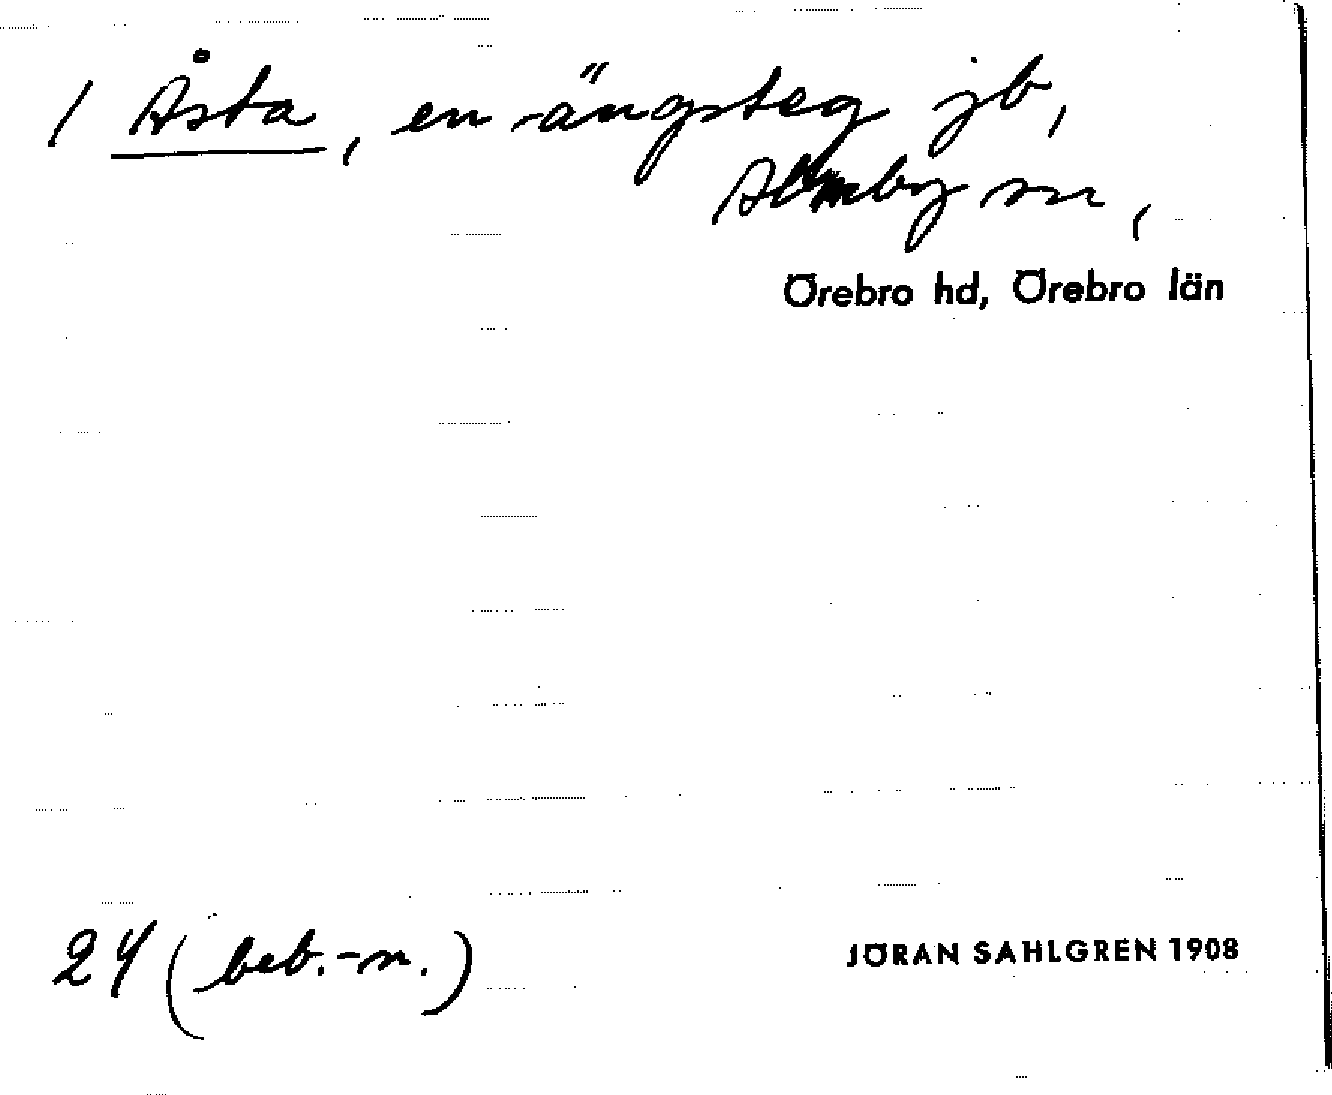 / Åsta, en ängsteg jb,
Almby sn,
Örebro hd, Örebro län
24 (beb.-n.)
JÖRAN SAHLGREN 1908